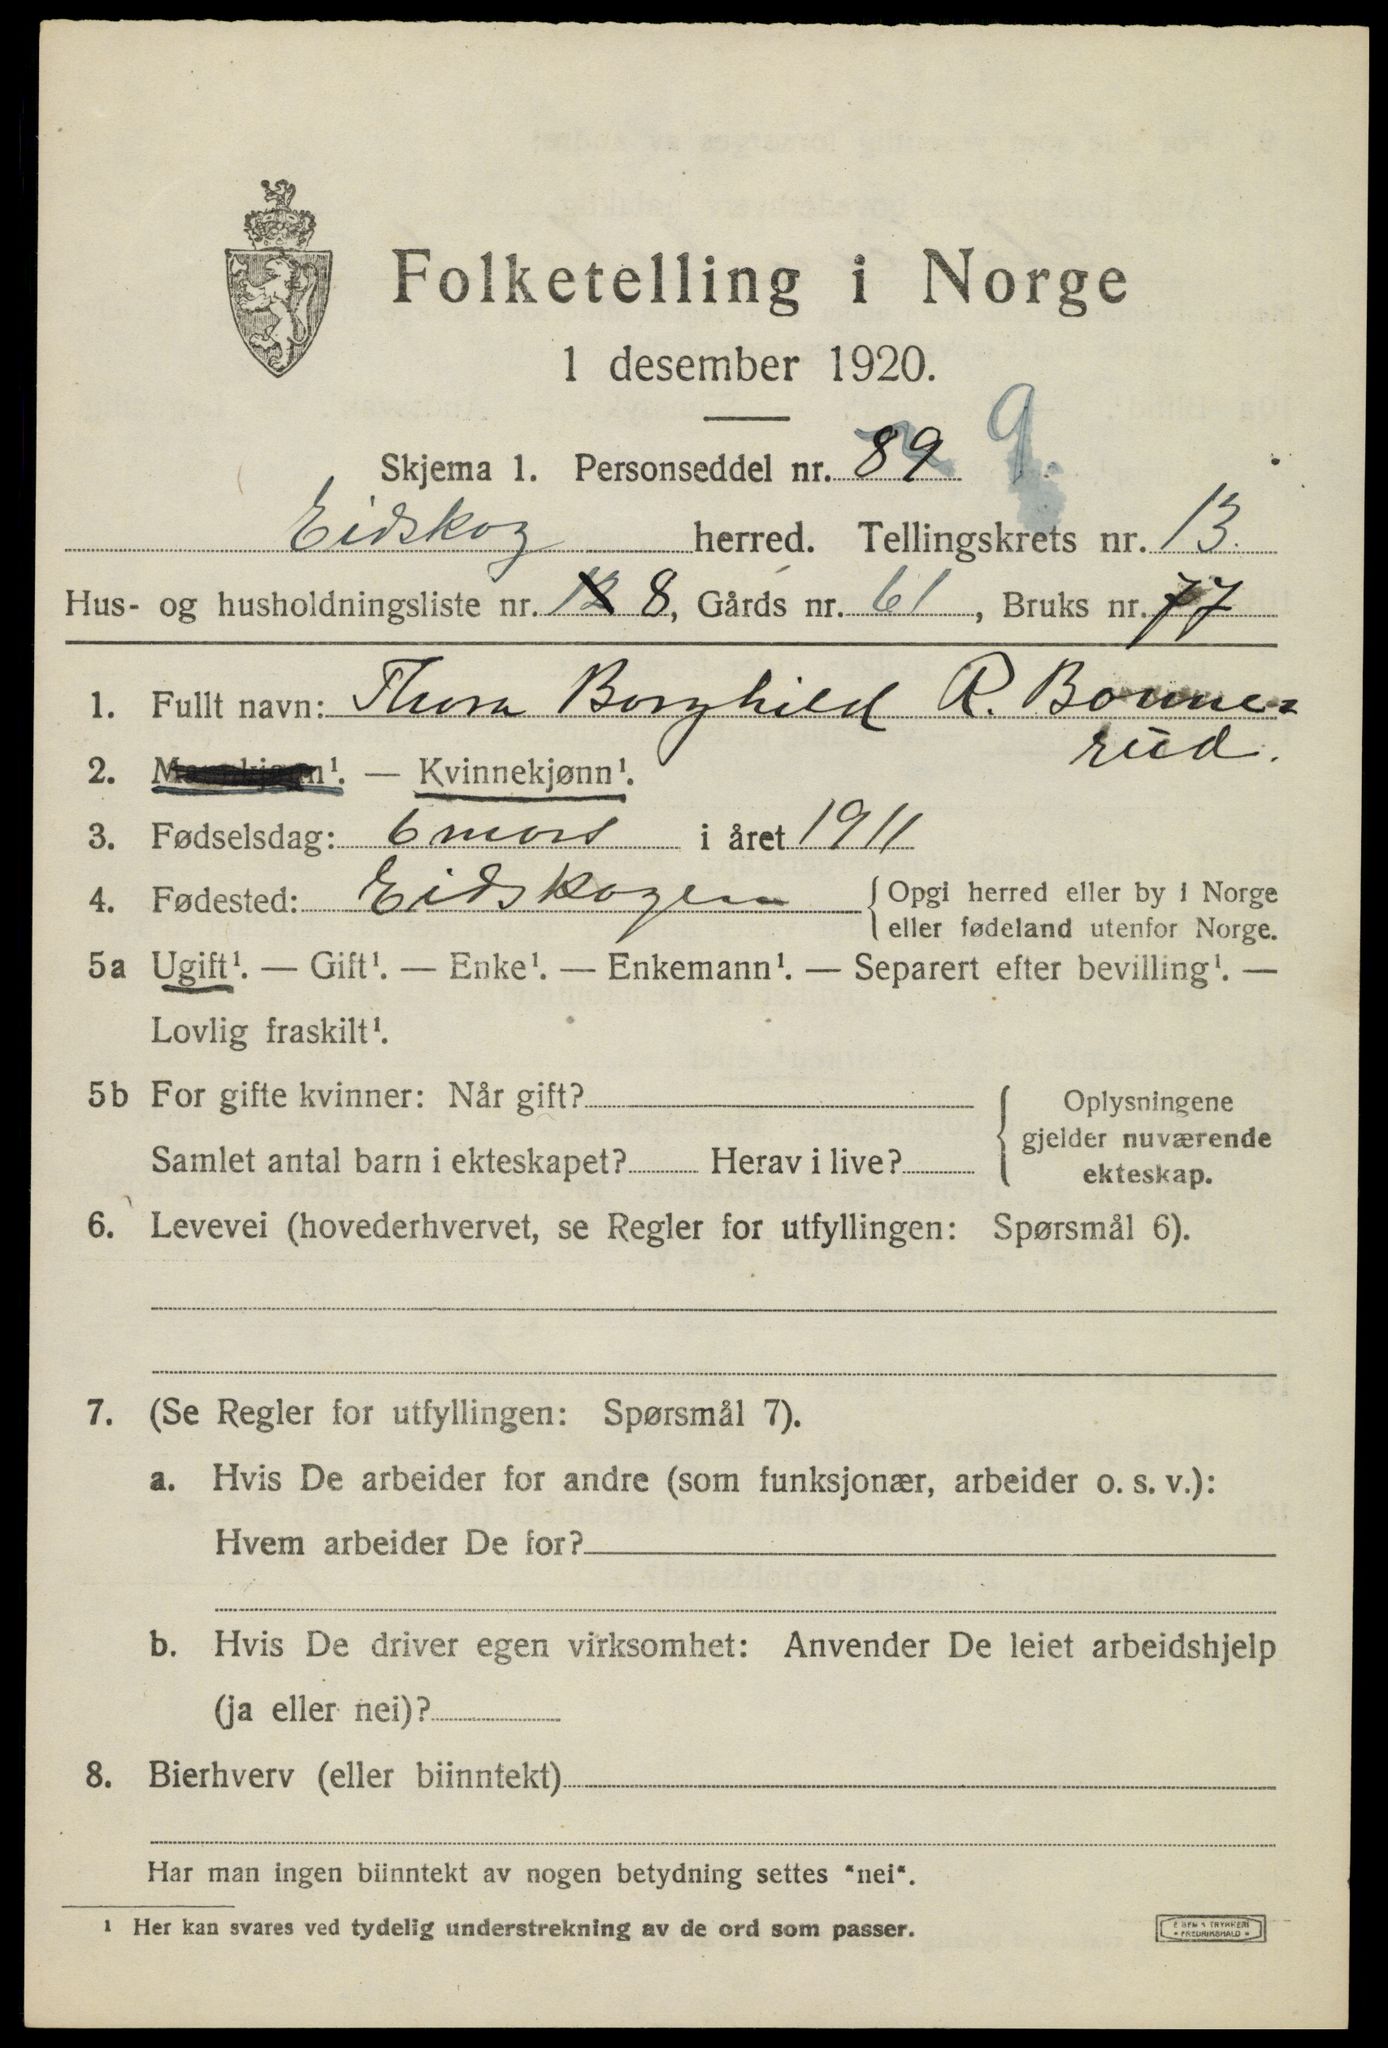 Folketelling i Norge
1 desember 1920.
Skjema 1. Personseddel nr. 89 9
Eidskog herred. Tellingskrets nr. 13.
Hus- og husholdningsliste nr. 12 8, Gårds nr. 61, Bruks nr. 77
1. Fullt navn: Thora Borghild R. Bonne=
rud.
2. Mannkjønn¹. — Kvinnekjønn¹.
3. Fødselsdag: 6 mars i året 1911
4. Fødested: Eidskogen { Opgi herred eller by i Norge
eller fødeland utenfor Norge.
5a Ugift¹. — Gift¹. — Enke¹. — Enkemann¹. — Separert efter bevilling¹. —
Lovlig fraskilt¹.
5b For gifte kvinner: Når gift? { Oplysningene
gjelder nuværende
Samlet antal barn i ekteskapet? Herav i live? ekteskap.
6. Levevei (hovederhvervet, se Regler for utfyllingen: Spørsmål 6).
7. (Se Regler for utfyllingen: Spørsmål 7).
a. Hvis De arbeider for andre (som funksjonær, arbeider o. s. v.):
Hvem arbeider De for?
b. Hvis De driver egen virksomhet: Anvender De leiet arbeidshjelp
(ja eller nei)?
8. Bierhverv (eller biinntekt)
Har man ingen biinntekt av nogen betydning settes "nei".
¹ Her kan svares ved tydelig understrekning av de ord som passer.
TRYKKERI
FREDRIKSHALD